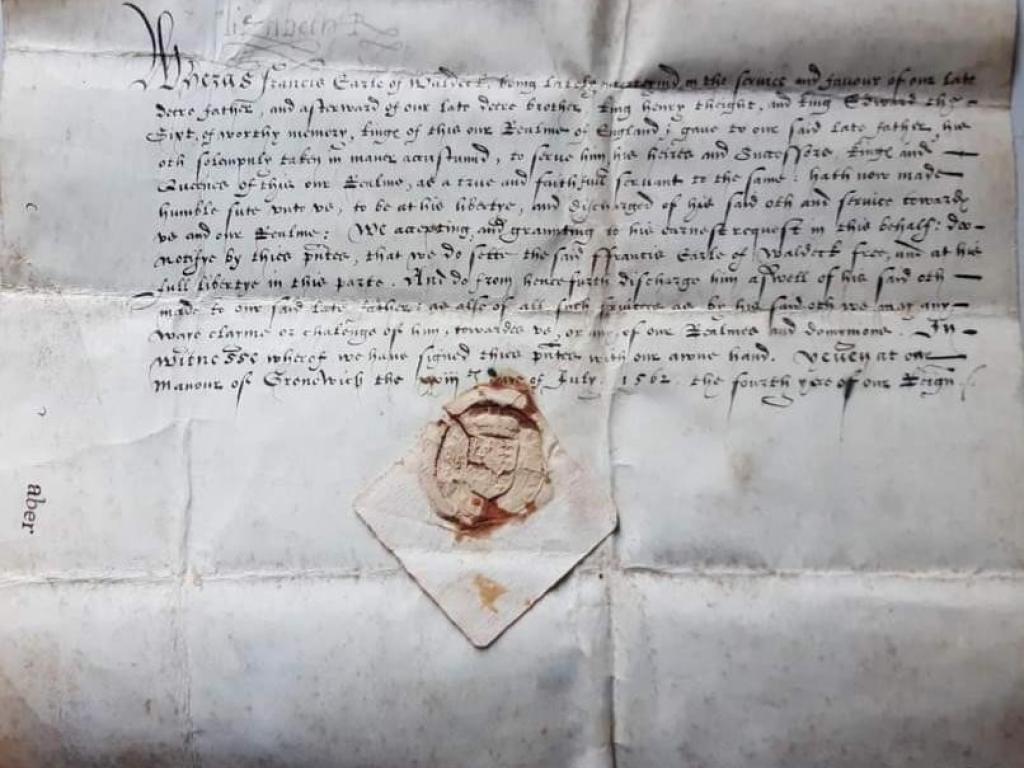 Elizabeth R
Wheras Francis Earle of Waldeck, being lately in the service and favour of our late
deere father, and afterward of our late deere brother, king henry theight, and king Edward the
Sixt, of worthy memory, kinge of this our Realme of England; gave to our said late father, his
oth solempnly taken in maner accustumid, to serve him, his heires and Successors, kinge and
Quenes of this our Realme, as a true and faithfull servant to the same: hath now made
humble sute unto us, to be at his libertye, and discharged of his said oth and service towards
us and our Realme: We accepting, and graunting to his earnest request in this behalf: doo
notifye by thies pntes, that we do sette the said ffrancis Earle of Waldeck free, and at his
full libertye in this parte. And do from hencefurth discharge him aswell of his said oth
made to our said late father: as also of all such services as by his said oth we may any
ware clayme or challenge of him, towardes us, or any of our Realmes and dominions. In
witnesse wherof we have signed thies pntes with our awne hand. Yeven at our
Manour of Grenewich the daye of July. 1562. the fourth yere of our Reign
aber